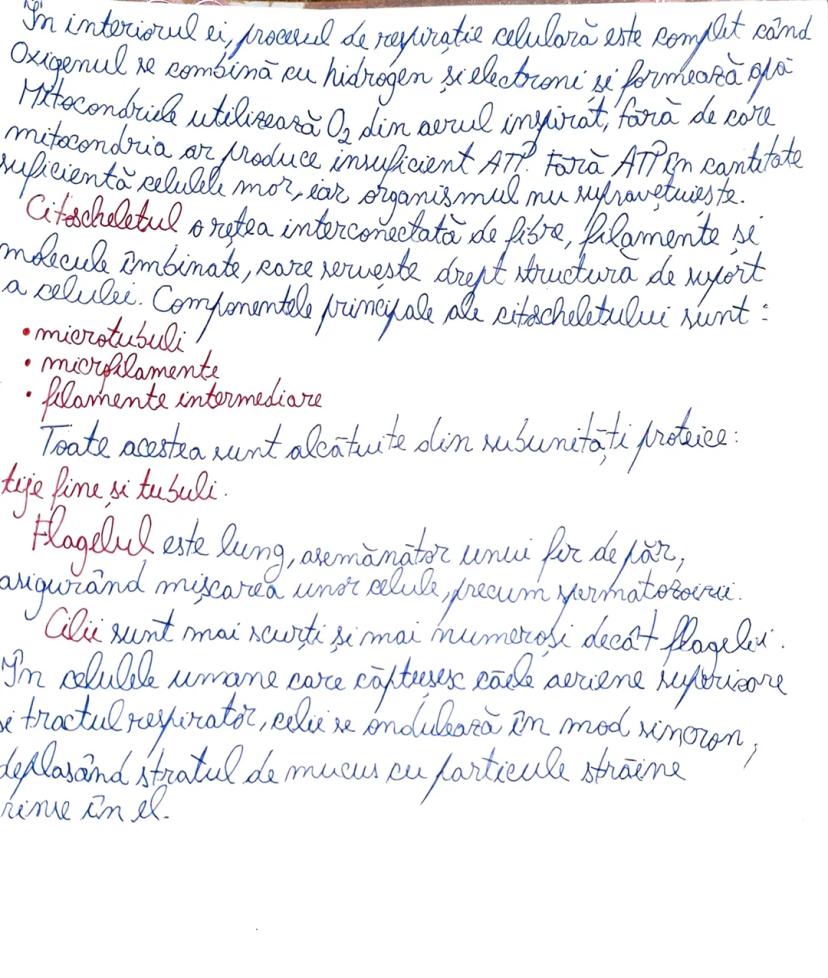 În interiorul ei, procesul de respirație celulară este complet când
Oxigenul se combină cu hidrogen și electroni și formează apă
Mitocondriile utilizează O2 din aerul inspirat, fără de care
mitocondria ar produce insuficient ATP. Fară ATP în cantitate
suficientă celulele mor, iar organismul nu supraviețuiește.
Citoscheletul o rețea interconectată de fibre, filamente și
molecule îmbinate, care servește drept structură de suport
a celulei. Componentele principale ale citoscheletului sunt:
• microtubuli
• microfilamente
• filamente intermediare
Toate acestea sunt alcătuite din subunități proteice:
tije fine și tubuli.
Flagelul este lung, asemănător unui fir de păr,
asigurând mișcarea unor celule, precum spermatozoizii.
Cilii sunt mai scurți și mai numeroși decât flagelii.
În celulele umane care căptușesc căile aeriene superioare
și tractul respirator, celii se ondulează în mod sincron,
deplasând stratul de mucus cu particule străine
rinse în el.